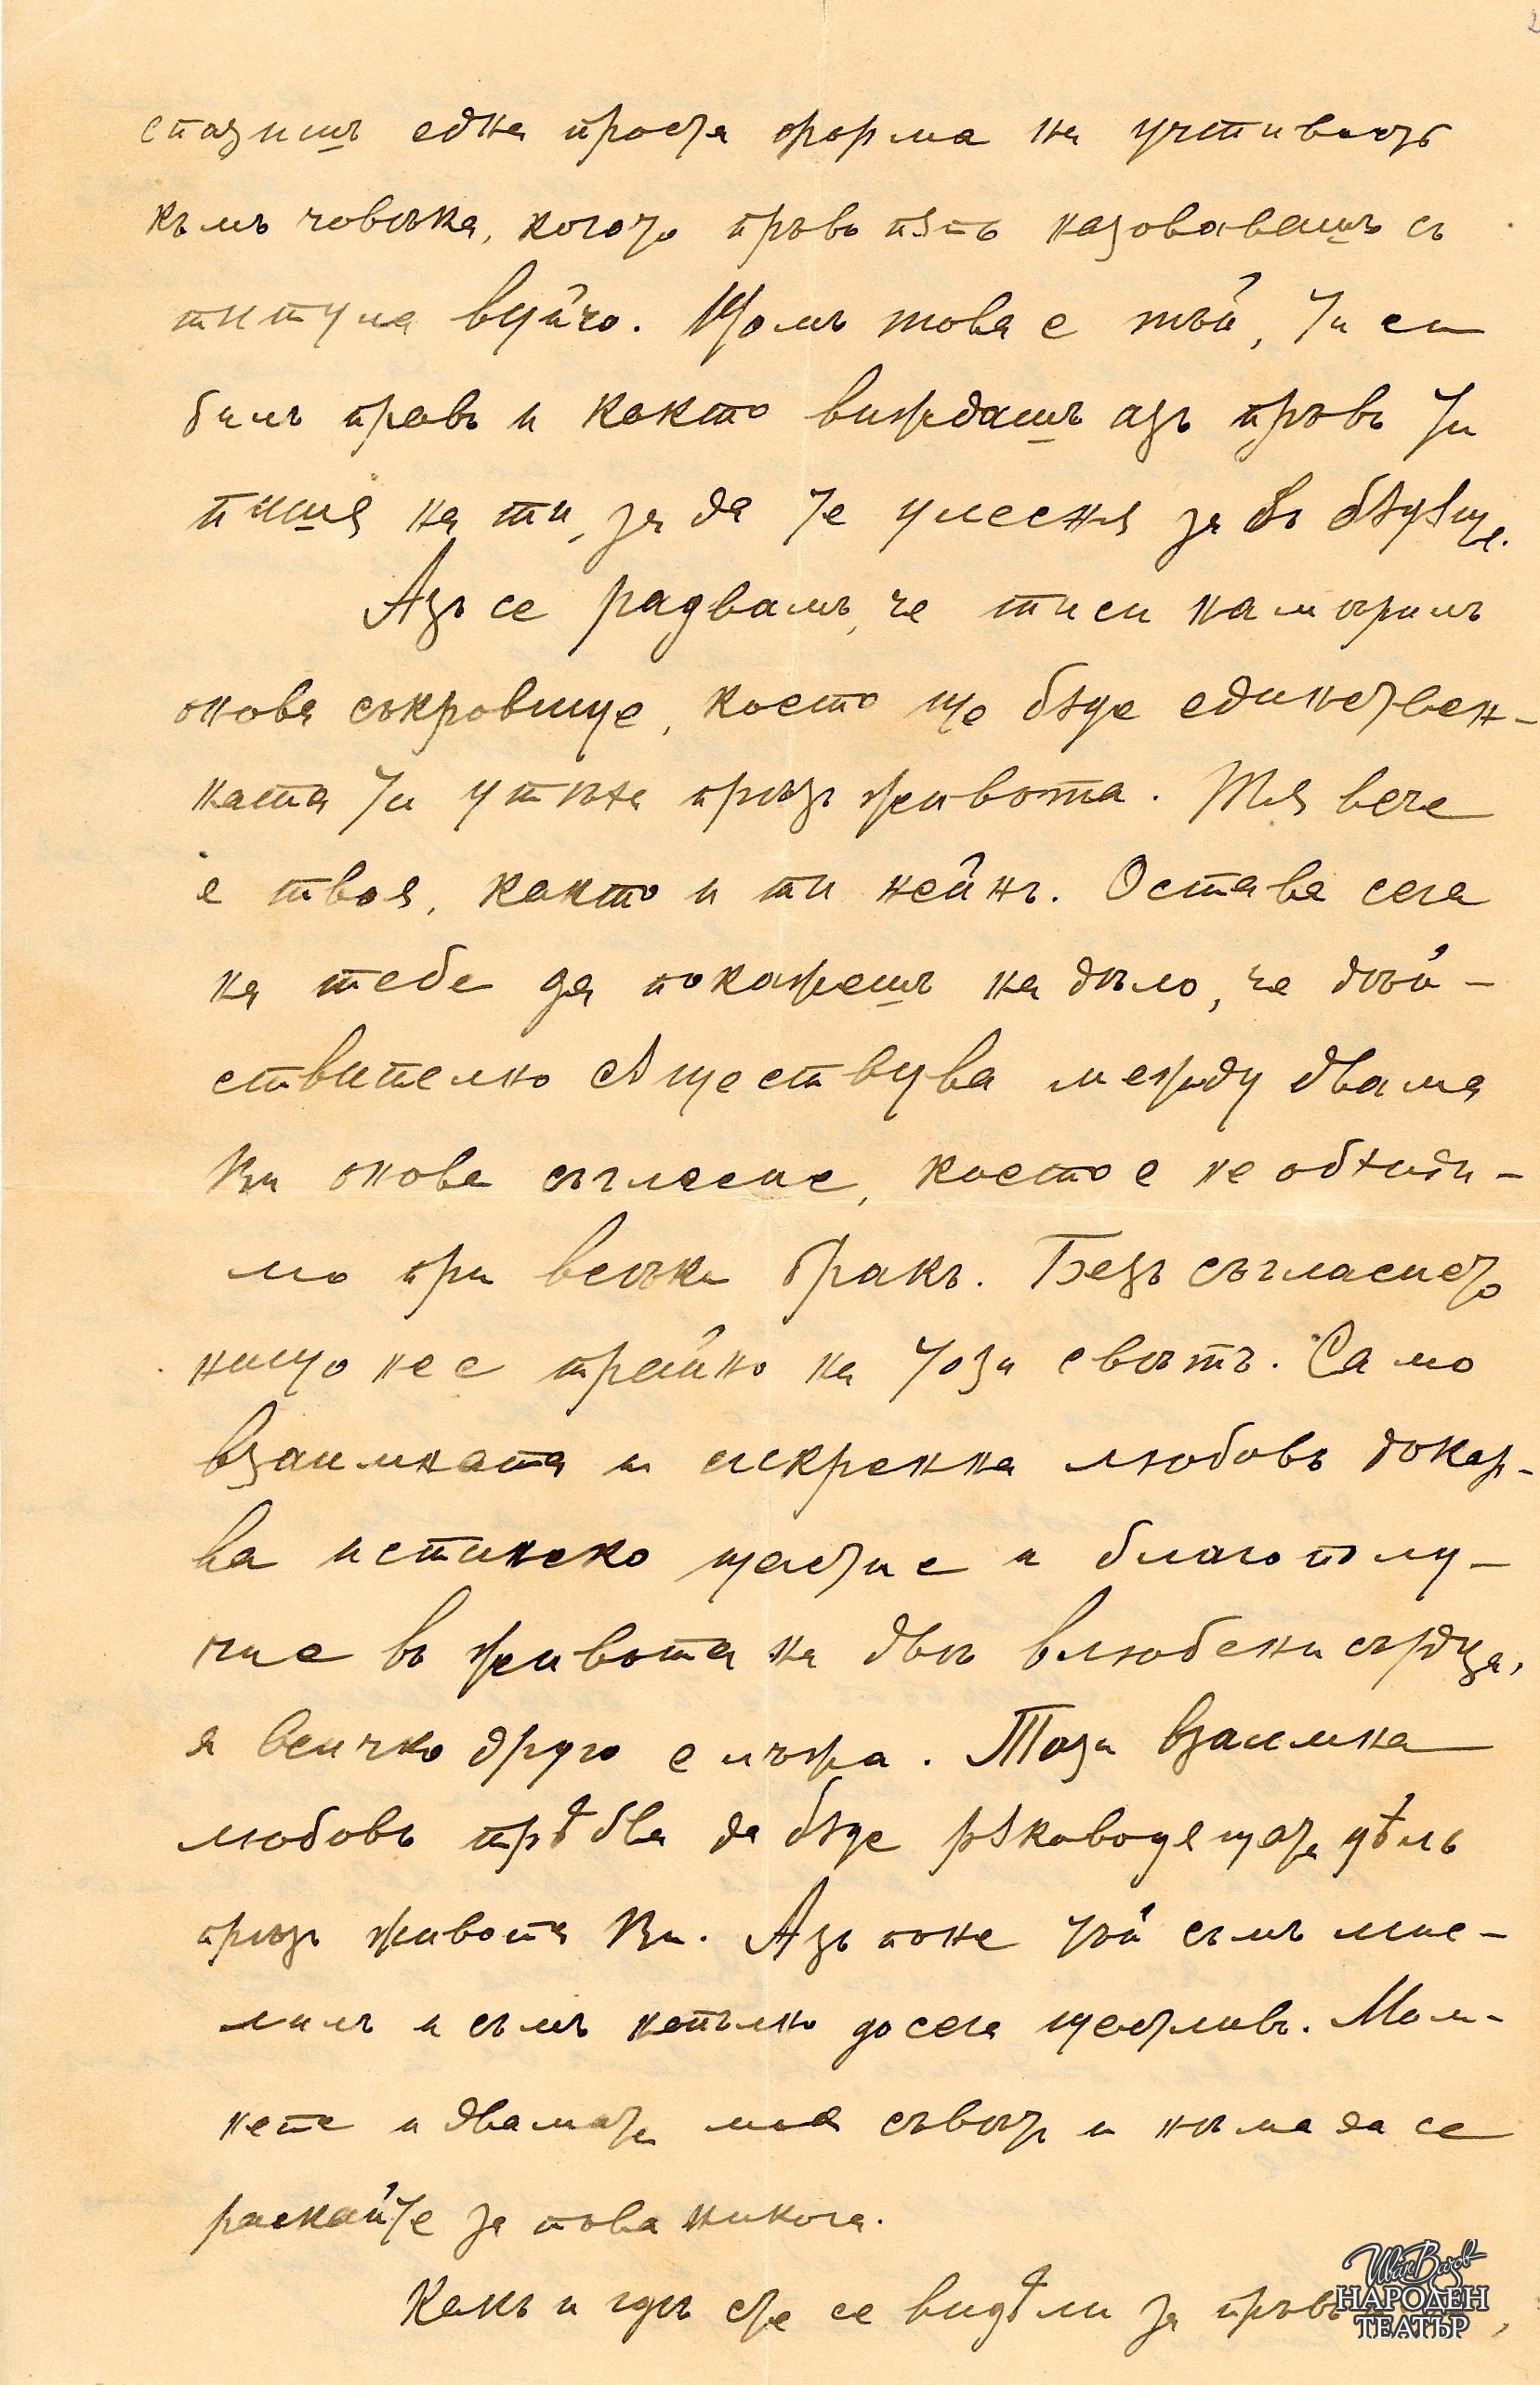 2
спазишъ една проста форма на учтивость
къмъ човѣка, когото пръвъ пѫть назовавашъ съ
титула вуйчо. Щомъ това е тъй, ти си
билъ правъ и както виждашъ азъ пръвъ ти
пишѫ на ти, за да те улеснѭ за въ бѫдѫще.
Азъ се радвамъ, че ти си намѣрилъ
онова съкровище, което ще бѫде единствен-
ната ти утѣха прѣзъ живота. Тя вече
е твоя, както и ти нейнъ. Остава сега
на тебе да покажешъ на дѣло, че дѣй-
ствително сѫществува между двама
Ви онова съгласие, което е необходи-
мо при всѣки бракъ. Безъ съгласието
нищо не е трайно на този свѣтъ. Само
взаимната и искренна любовь докар-
ва истинско щастие и благополу-
чие въ живота на двѣ влюбени сърдца,
а всичко друго е лъжа. Тази взаимна
любовь трѣбва да бѫде рѫководящата цѣль
прѣзъ живота Ви. Азъ поне тъй съмъ мис-
лилъ и съмъ напълно до сега щастливъ. Пом-
нете и двамата моя съвѣтъ и нѣма да се
раскайте за това никога.
Какъ и гдѣ сте се видѣли за пръвъ
Иван Вазов
НАРОДЕН
ТЕАТЪР